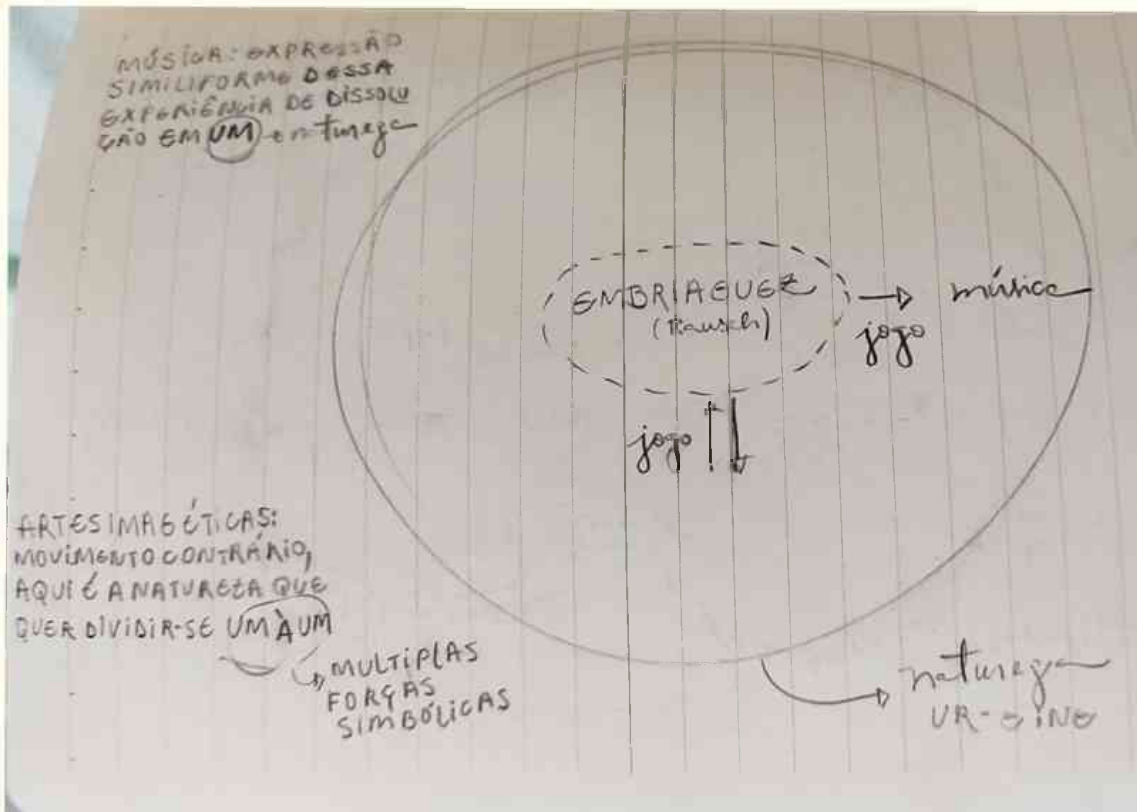 MÚSICA: EXPRESSÃO
SIMILIFORME DESSA
EXPERIÊNCIA DE DISSOLU
ÇÃO EM UM natureza
EMBRIAGUEZ
(Rausch)
música
jogo
jogo
ARTES IMAGÉTICAS:
MOVIMENTO CONTRÁRIO,
AQUI É A NATUREZA QUE
QUER DIVIDIR-SE UM À UM
MULTIPLAS
FORÇAS
SIMBÓLICAS
natureza
UR-EINE